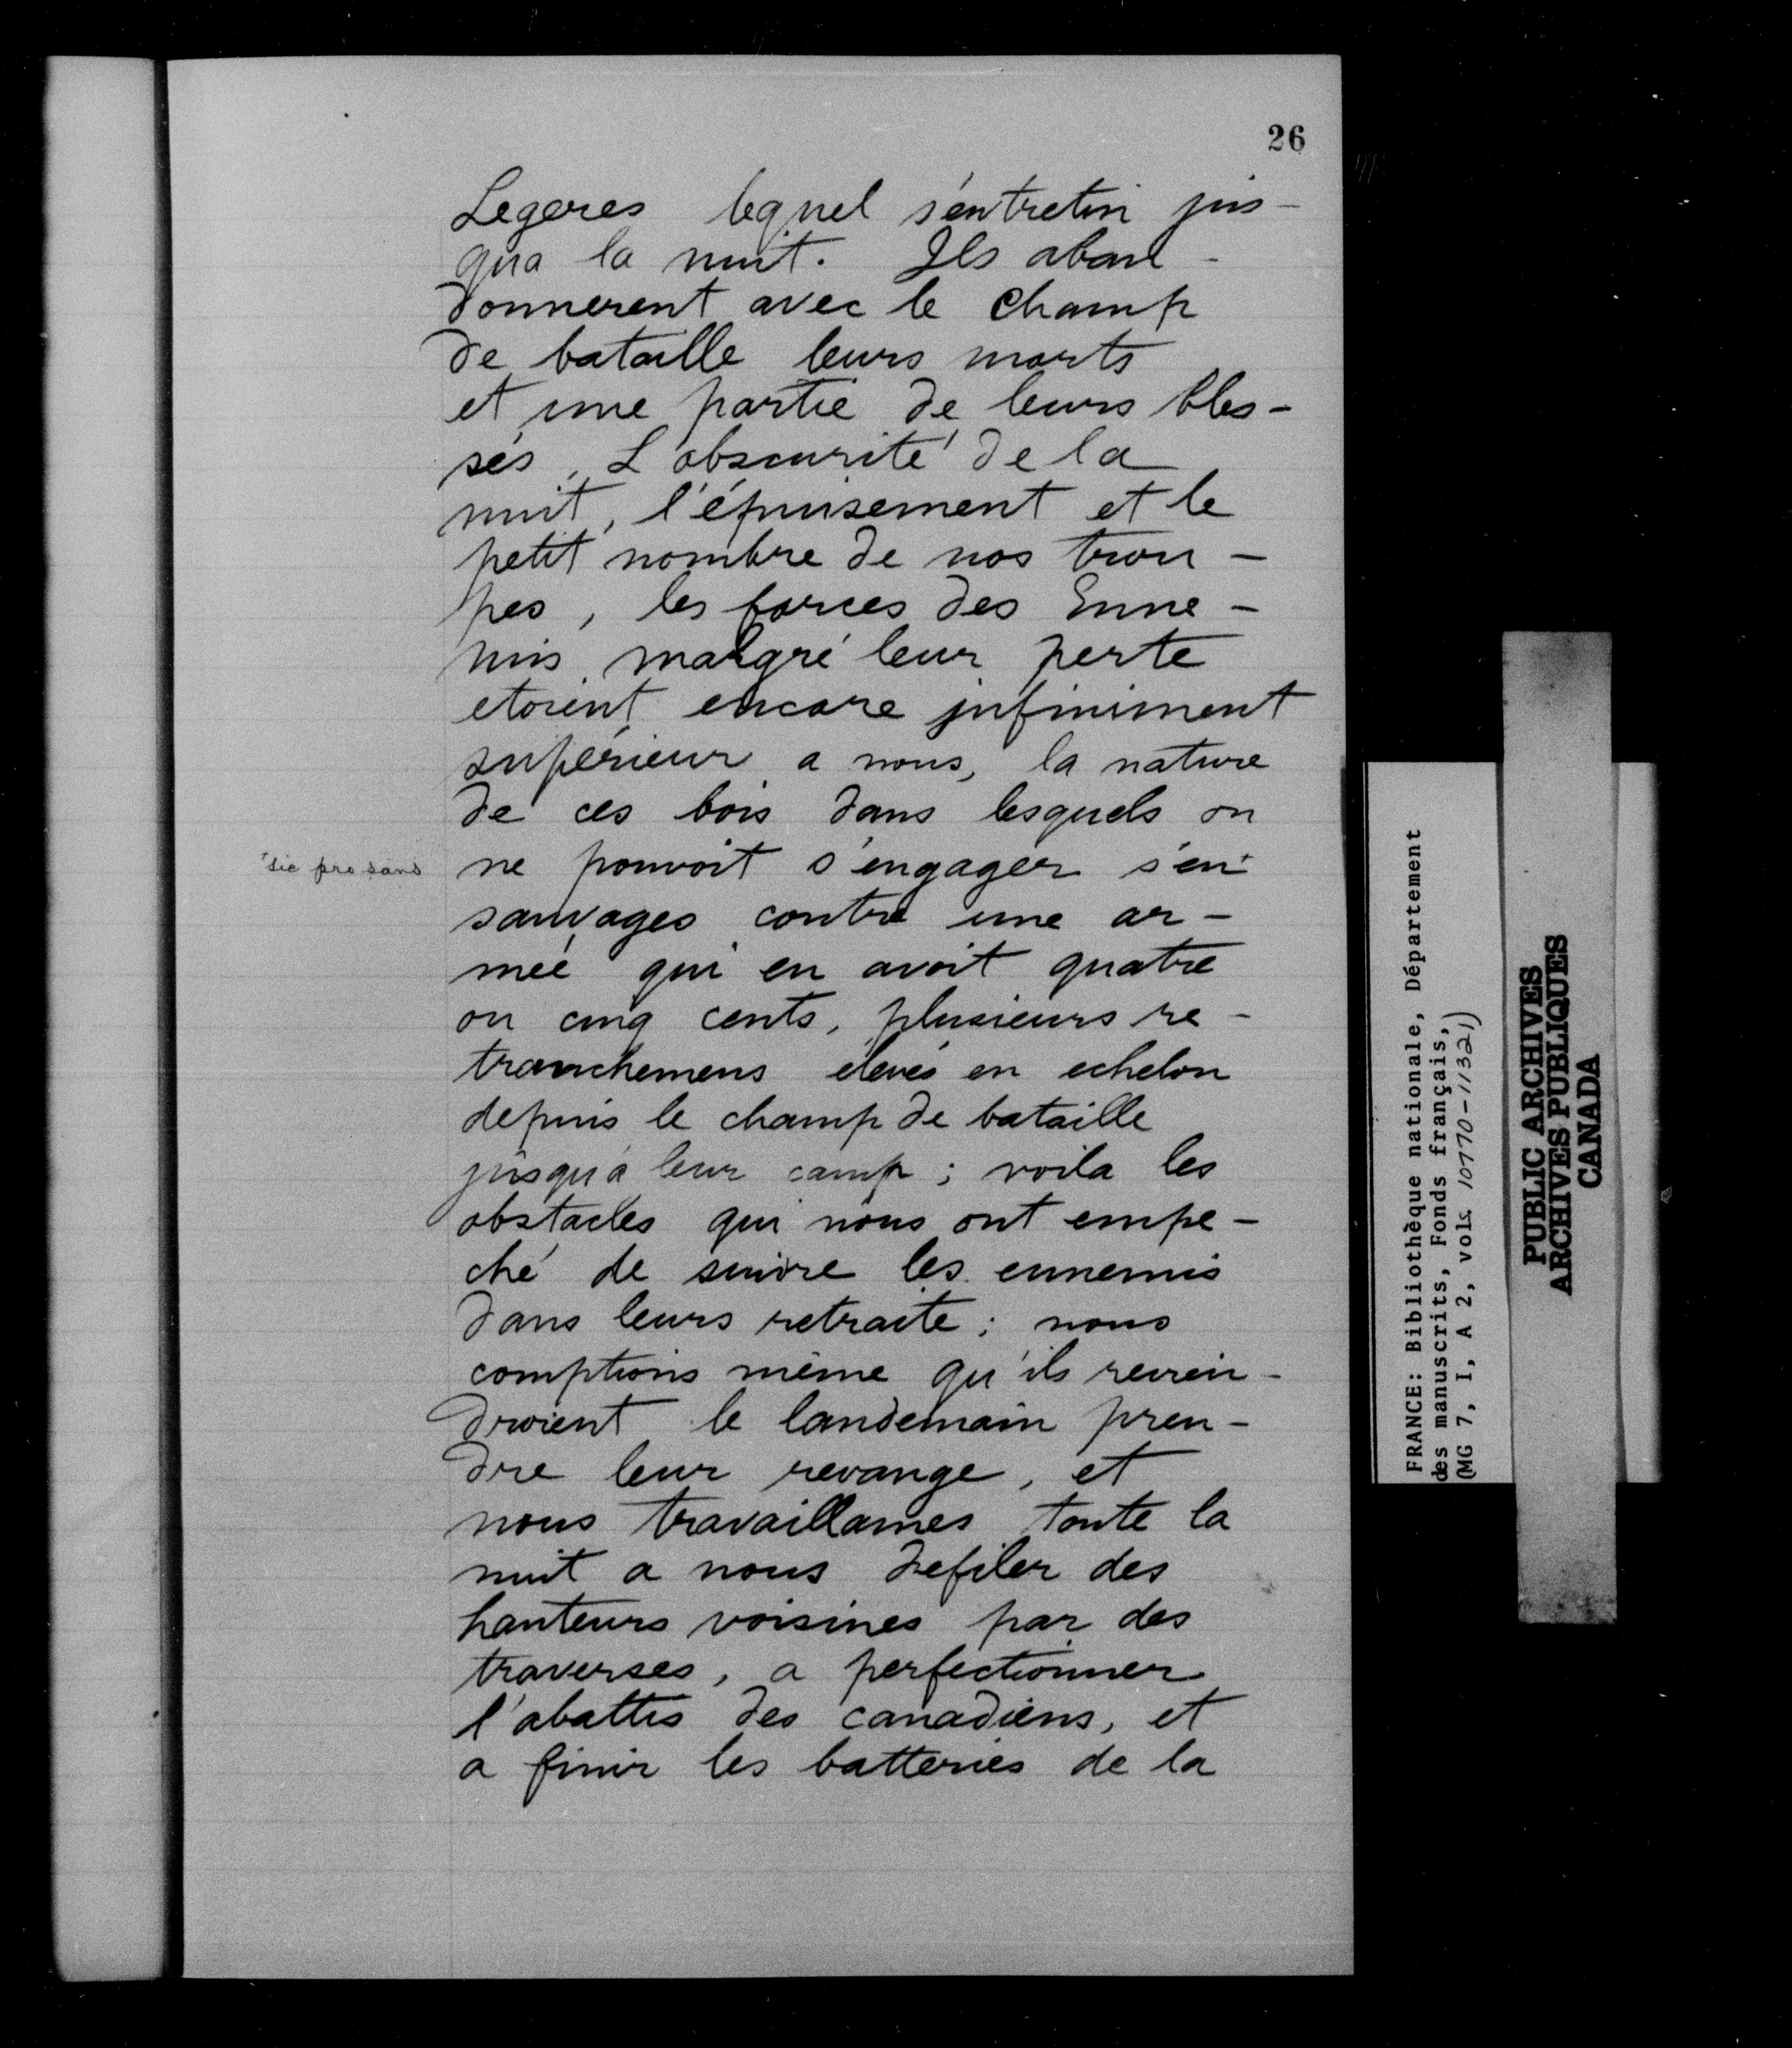 26
Legeres lequel s'entretin jus-
qua la nuit. Ils aban-
donnerent avec le champ
de bataille leurs morts
et une partie de leurs bles-
sés, L'obscurité de la
nuit, l'épuisement et le
petit nombre de nos trou-
pes, les forces des Enne-
mis malgré leur perte
etoient encore infiniment
supérieur a nous, la nature
de ces bois dans lesquels on
ne pouvoit s'engager s'en
'sic pro sans
sauvages contre une ar-
meé qui en avoit quatre
ou cinq cents, plusieurs re-
tranchemens élevés en echelon
depuis le champ de bataille
jusqu'à leur camp; voila les
obstacles qui nous ont empe-
ché de suivre les ennemis
dans leurs retraite; nous
comptions même qu'ils revien-
droient le landemain pren-
dre leur revange, et
nous travaillames toute la
nuit a nous defiler des
hauteurs voisines par des
traverses, a perfectionner
l'abattis des canadiens, et
a finir les batteries de la
FRANCE: Bibliothèque nationale, Département
des manuscrits, Fonds français,
(MG 7, I, A 2, vols. 10770-11321)
PUBLIC ARCHIVES
ARCHIVES PUBLIQUES
CANADA